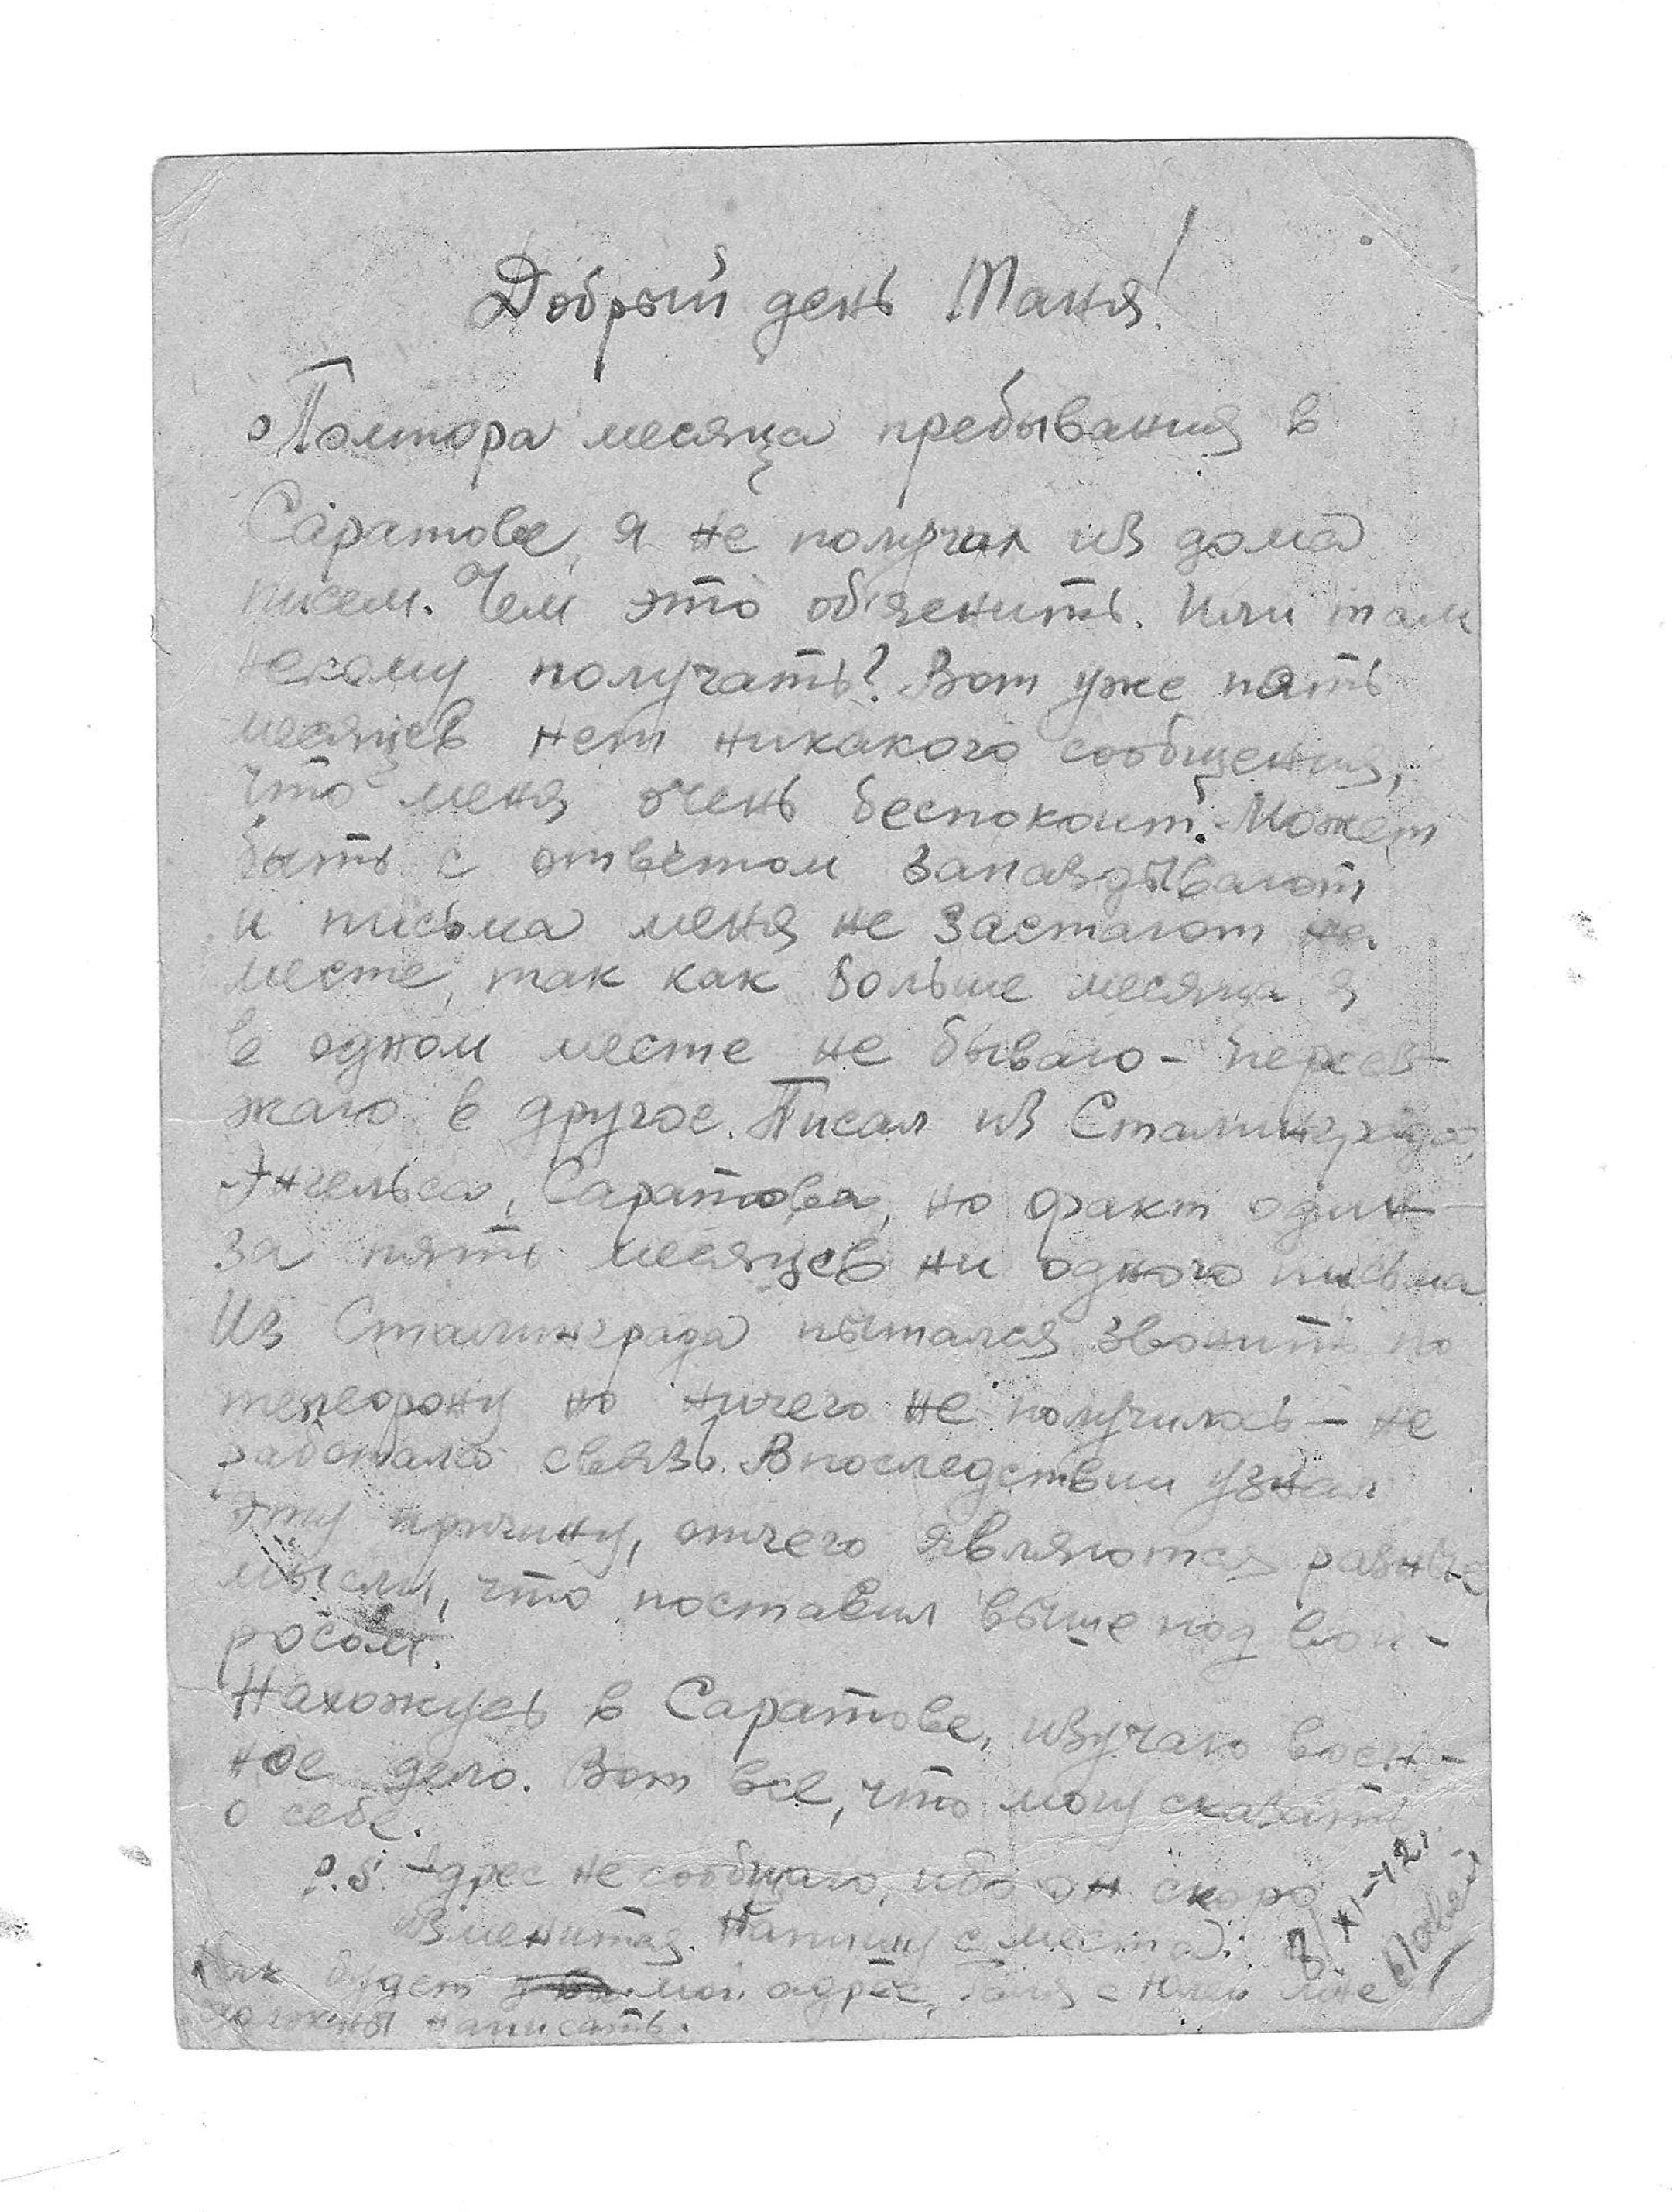 Добрый день Таня!
Полтора месяца пребывания в
Саратове, я не получил из дома
писем. Чем это об'яснить. Или там
некому получать? Вот уже пять
месяцев нет никакого сообщения,
что меня очень беспокоит. Может
быть с ответом запаздывают
и письма меня не застают на
месте, так как больше месяца я
в одном месте не бываю - переез-
жаю в другое. Писал из Сталинграда,
Энгельса, Саратова, но факт один -
за пять месяцев ни одного письма
Из Сталинграда пытался звонить по
телефону но ничего не получилось - не
работала связь. Впоследствии узнал
эту причину, отчего являются разные
мысли, что поставил выше под воп-
росом.
Нахожусь в Саратове, изучаю воен-
ное дело. Вот все, что могу сказать
о себе.
P.S. Адрес не сообщаю, ибо он скоро
изменится. Напишу с места.
8/XI-42г.
Павел
Как будет мой адрес, мне
должны написать.